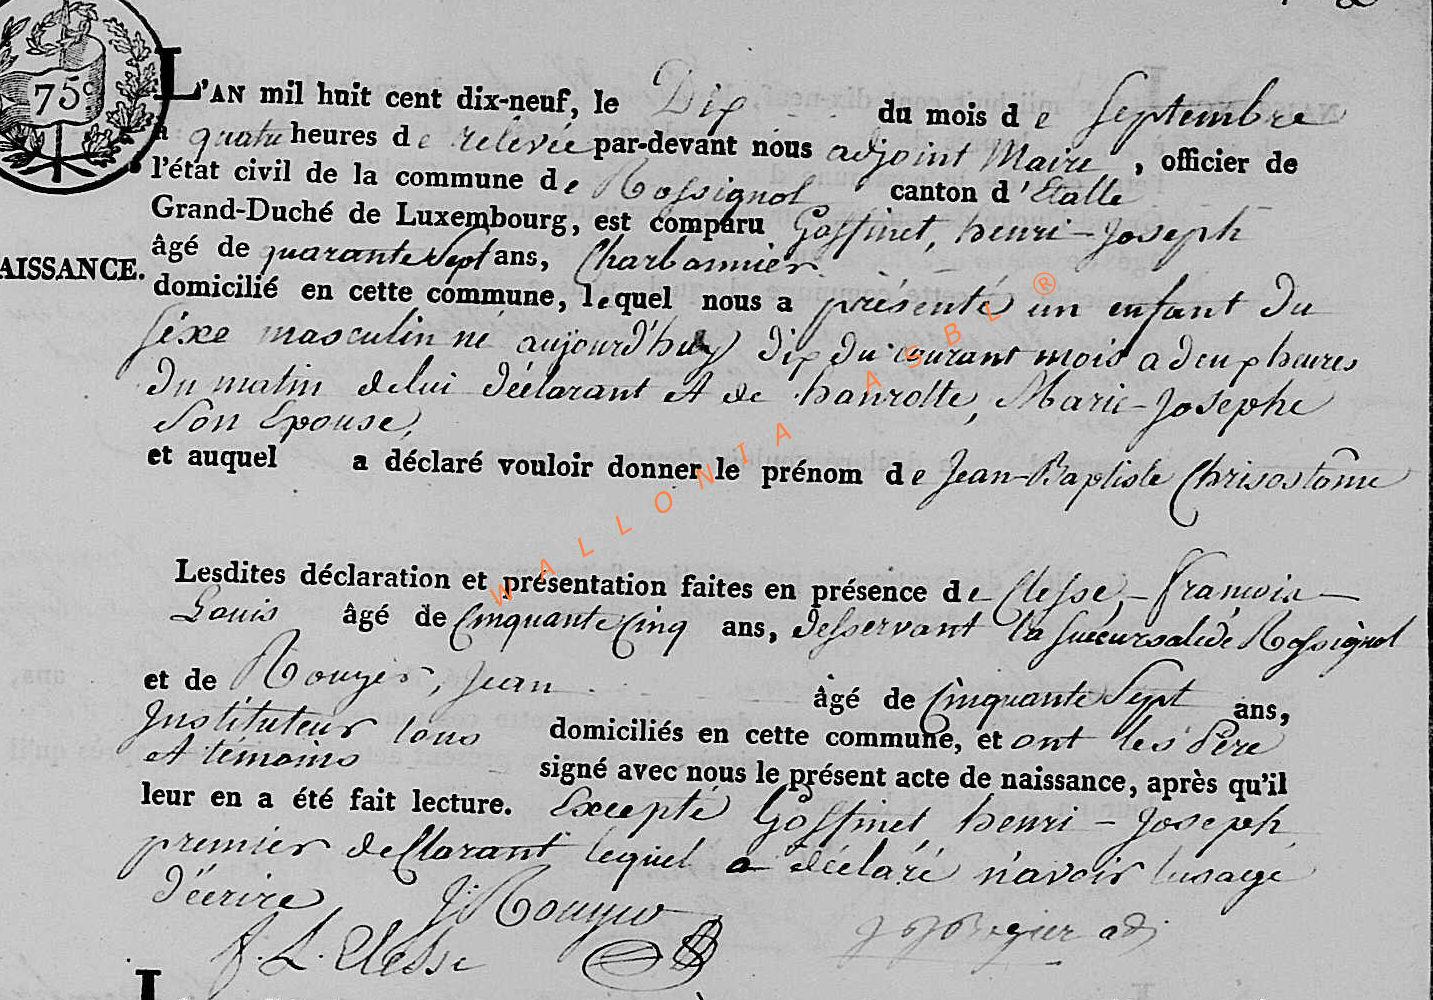 75c
L'AN mil huit cent dix-neuf, le Dix du mois de Septembre
a quatre heures de relevée par-devant nous adjoint Maire, officier de
l'état civil de la commune de Rossignol canton d'Etalle
Grand-Duché de Luxembourg, est comparu Goffinet, henri-Joseph
AISSANCE.
âgé de quarante Sept ans, Charbonnier
domicilié en cette commune, lequel nous a présenté un enfant du
sexe masculin né aujourd'huy dix du courant mois a deux heures
du matin de lui déclarant et de hanrotte, Marie-Josephe
Son Epouse,
et auquel a déclaré vouloir donner le prénom de Jean-Baptiste Chrisostôme
Lesdites déclaration et présentation faites en présence de Clesse, francois
Louis âgé de Cinquante Cinq ans, desservant la succursale de Rossignol
et de Rouyer, Jean âgé de Cinquante Sept ans,
Instituteur tous domiciliés en cette commune, et ont les Père
et témoins signé avec nous le présent acte de naissance, après qu'il
leur en a été fait lecture. Excepté Goffinet henri-Joseph
premier declarant lequel a déclaré n'avoir lusage
d'écrire
J: Rouyer
f. L. Clesse
adj
WALLONIA ASBL ®